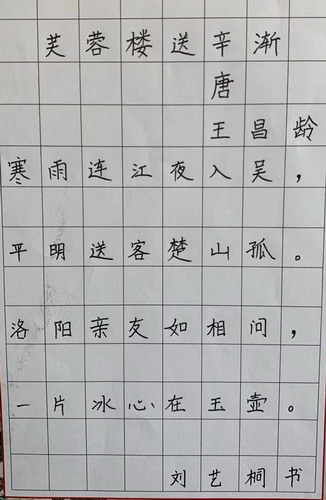 芙蓉楼送辛渐
唐
王昌龄
寒雨连江夜入吴，
平明送客楚山孤。
洛阳亲友如相问，
一片冰心在玉壶。
刘艺桐书